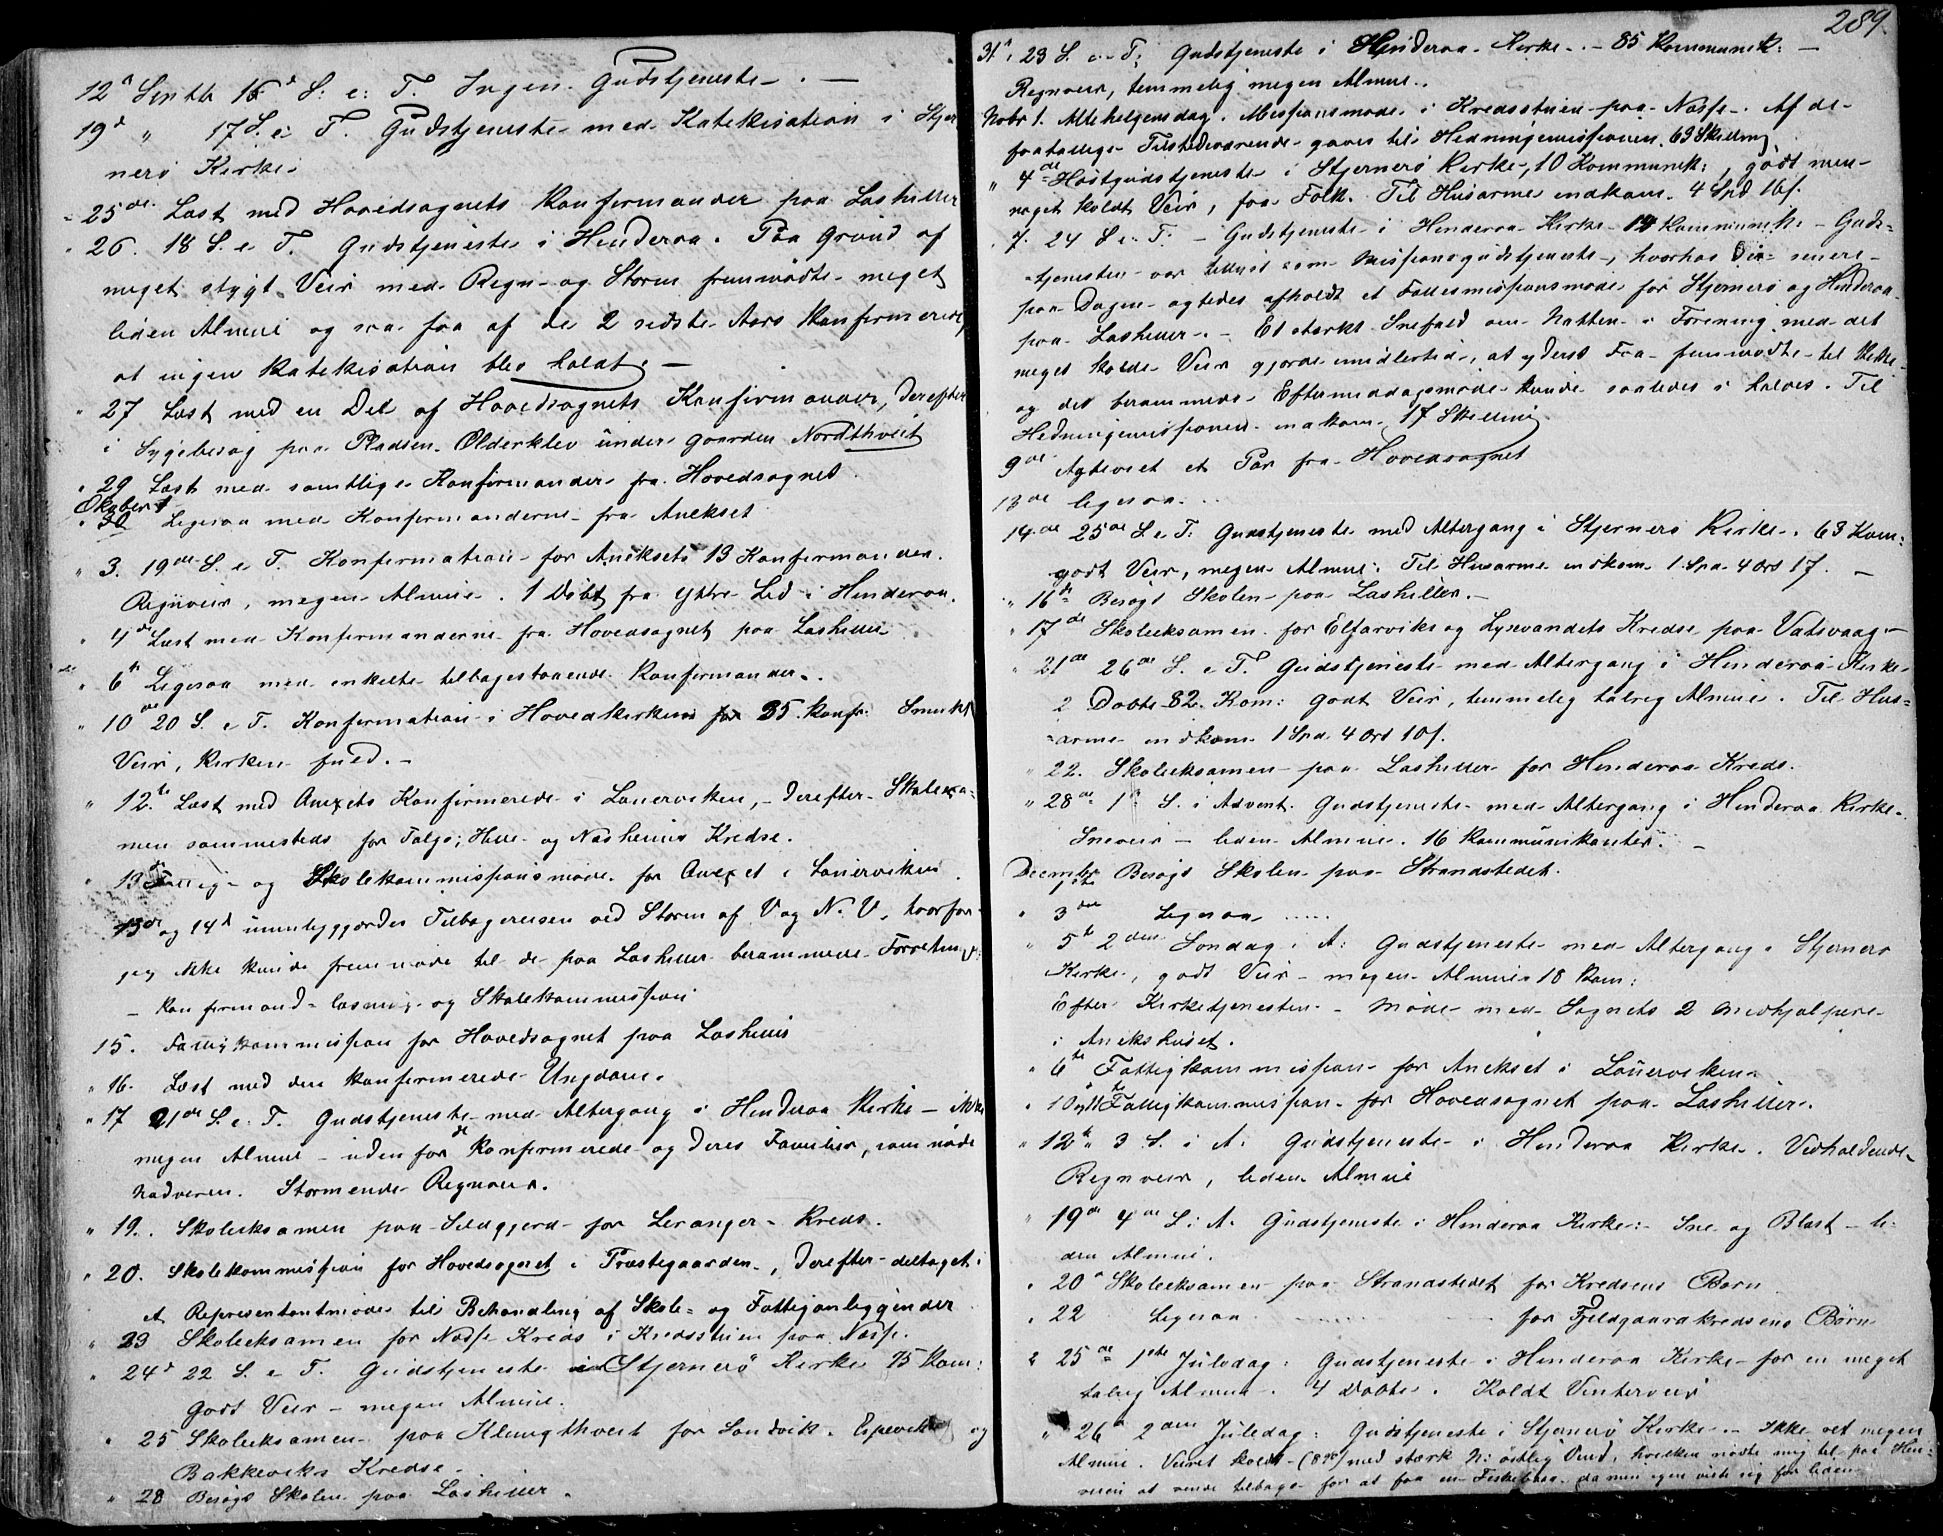 12te Septb 16de S: e: T. Ingen Gudstjeneste. —
19de „ 17 S. e. T. Gudstjeneste med Katekisation i Stjer
nerø Kirke
25de Læst med Hovedsognets Konfirmander paa Lashiller
26. 18 S. e T. Gudstjeneste i Hinderaa. Paa Grund af
meget stygt Veir med Regn og Storm fremmødte meget
liden Almue og saa faa af de 2 sidste Aars Konfirmerede,
at ingen Katekisation blev holdt. —
„ 27 Læst med en Del af Hovedsognets Konfirmander, derefter
i Sygebesøg paa Pladsen Olderklev under Gaarden Nordthveit
„ 29 Læst med samtlige Konfirmander fra Hovedsognet.
Oktober 1
„ 30 Ligesaa med Konfirmanderne fra Anekset
„ 3. 19de S. e T. Konfirmation for Aneksets 13 Konfirmander.
Regnveir, megen Almue. 1 Døbt fra Yttre Led i Hinderaa.
„ 4de Læst med Konfirmanderne fra Hovedsognet paa Lashiller
„ 6te Ligesaa med enkelte tilbagestaaende Konfirmander.
„ 10de 20 S. e T. Konfirmation i Hovedkirken for 35 Konf: Smukt
Veir, Kirken fuld. —
„ 12te Læst med Anexets Konfirmerede i Lauerviken, — derefter Skolexa-
men sammesteds for Talgø, Helle og Nasheims Kredse.
„ 13de Fattig- og Skolekommissionsmøde for Anexet i Lauerviken.
13de og 14de umuliggjordes Tilbagereisen ved Storm af V og N. V., hvorfor
jeg ikke kunde fremmøde til de paa Lashiller berammede Forretning:
— Konfirmand-læsning og Skolekommission
15. Fattigkommission for Hovedsognet paa Lashiller
„ 16. Læst med den konfirmerede Ungdom.
„ 17 21de S. e. T. Gudstjeneste med Altergang i Hinderaa Kirke — ikke
megen Almue — uden for de Konfirmerede og deres Familier, som nøde
Nadveren. Stormende Regnveir.
„ 19. Skoleeksamen paa Sildgjerd for Leranger Kreds.
„ 20. Skolekommission for Hovedsognet i Præstegaarden, derefter deltaget i
et Representantmøde til Behandling af Skole- og Fattiganliggender
„ 23 Skoleeksamen for Næsse Kreds i Kredsstuen paa Næsse.
„ 24de 22 S. e T. Gudstjeneste i Stjernerø Kirke 75 Kom:
godt Veir — megen Almue.
„ 25 Skoleeksamen paa Klungthveit for Sandvik- Espevik og
Bakkeviks Kredse.
„ 28 Besøgt Skolen paa Lashiller.
289.
31te 23 S. e. T: Gudstjeneste i Hinderaa Kirke. — 85 Kommunik: —
Regnveir, temmelig megen Almue.
Nobr 1. Allehelgensdag. Missionsmøde i Kredsstuen paa Næsse. Af de
faatallige Tilstedeværende gaves til Hedningemissionen 63 Skilling
„ 4de Høstgudstjeneste i Stjernerø Kirke, 10 Kommunik:, godt men
noget koldt Veir, faa Folk. Til Husarme indkom 4 Spd 16 s.
7. 24 S e T. — Gudstjeneste i Hinderaa Kirke 14 Kommunik — Guds-
tjenesten var tillyst som Missionsgudstjeneste, hvorhos der senere
paa Dagen agtedes afholdt et Fællesmissionsmøde for Stjernerø og Hinderaa
paa Lashiller. — Et stærkt Snefald om Natten i Forening med det
meget kolde Veir gjorde imidlertid, at yderst Faa fremmødte til Kirke
og det berammede Eftermiddagsmøde kunde saaledes ei holdes. Til
Hedningemissionen indkom 17 Skilling.
9de Ægteviet et Par fra Hovedsognet
13de ligesaa. . . .
14de 25de S. e T. Gudstjeneste med Altergang i Stjernerø Kirke. 63 Kom:
godt Veir, megen Almue. Til Husarme indkom 1 Spd. 4 Ort 17. —
„ 16de Besøgt Skolen paa Lashiller. —
„ 17de Skoleeksamen for Elfarviks og Lysevandets Kredse paa Vatsvaag —
„ 21de 26de S. e T. Gudstjeneste med Altergang i Hinderaa Kirke
2 Døbte 82 Kom: Godt Veir, temmelig talrig Almue. Til Hus-
arme indkom 1 Spd. 4 Ort 10 s.
„ 22. Skoleeksamen paa Lashiller for Hinderaa Kreds.
„ 28de 1te S. i Advent. Gudstjeneste med Altergang i Hinderaa Kirke.
Sneveir — liden Almue. 16 Kommunikanter. —
December
1ste Besøgt Skolen paa Strandstedet.
„ 3die Ligesaa . . . . .
„ 5te 2den Søndag i A: Gudstjeneste med Altergang i Stjernerø
Kirke, godt Veir — megen Almue 18 Kom:
Efter Kirketjenesten Møde med Sognets 2 Medhjælpere
i Anekshuset.
„ 6te Fattigkommission for Anekset i Lauerviken.
„ 10 og 11te Fattigkommission for Hovedsognet paa Lashiller.
„ 12te 3 S. i A. Gudstjeneste i Hinderaa Kirke. Vedholdende
Regnveir, liden Almue
„ 19de 4de S. i A. Gudstjeneste i Hinderaa Kirke: Sne og Blæst — li-
den Almue.
„ 20de Skoleeksamen paa Strandstedet for Kredsens Børn
„ 22 Ligesaa . . . . . for Fjeldgaardkredsens Børn
„ 25de 1ste Juledag: Gudstjeneste i Hinderaa Kirke for en meget
talrig Almue. 4 Døbte. Koldt Vinterveir
„ 26de 2den Juledag: Gudstjeneste i Stjernerø Kirke — Ikke ret megen
Almue. Veiret koldt (8°) med stærk N: østlig Vind, hvilken nødte mig til paa Hen-
veien at vende tilbage for at faa en Fiskebaad, da min egen viste sig for liden